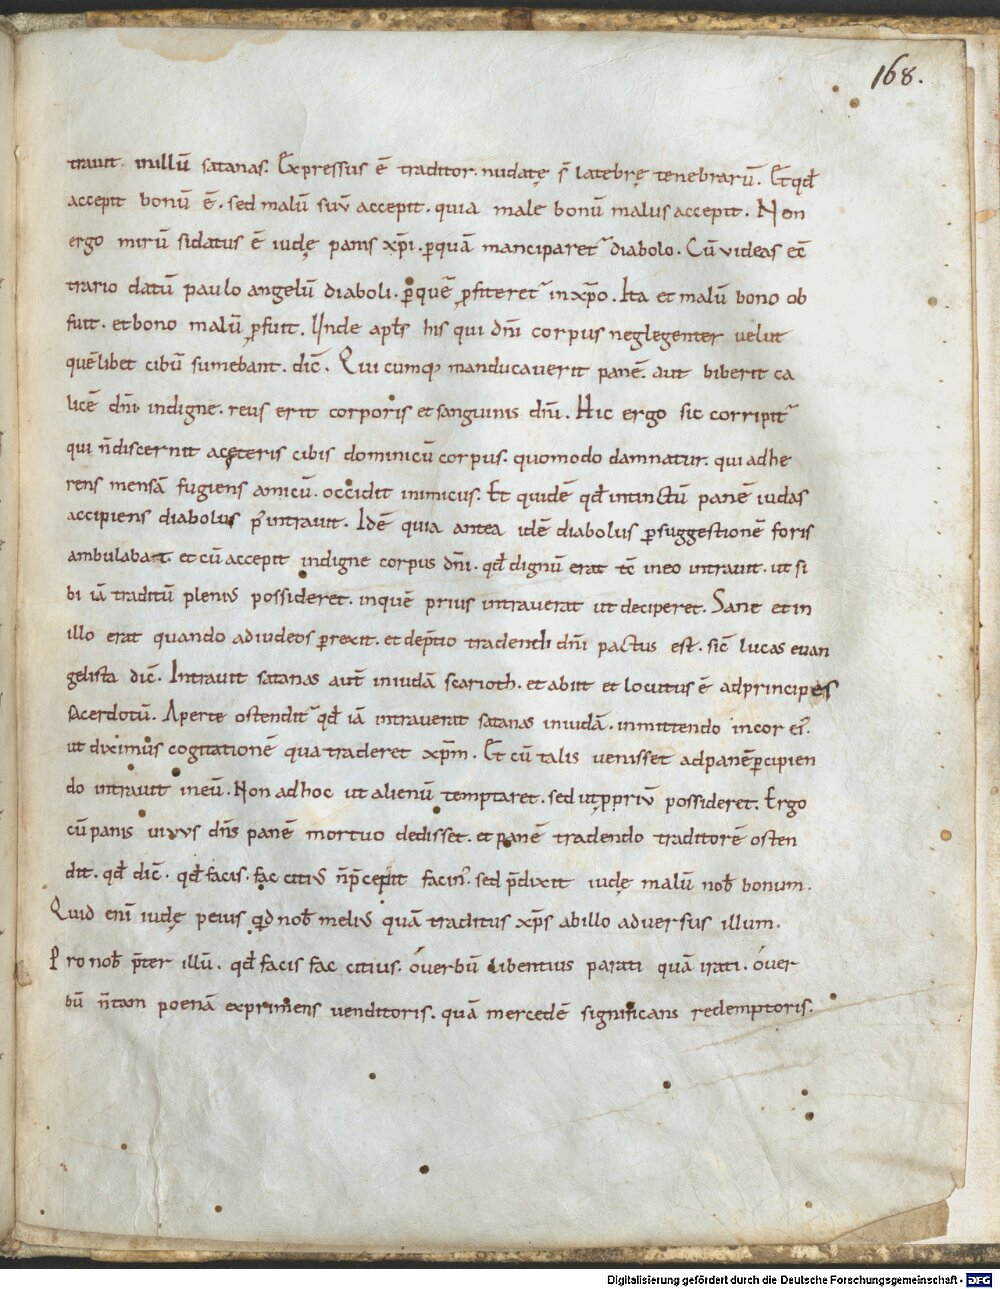 168.
trauit. inillū satanas. Expressus ē traditor. nudatę s̄ latebrę tenebrarū. Et qđ
accepit bonū ē. sed malū suū accepit. quia male bonū malus accepit. Non
ergo mirū sidatus ē iudę panis xp̄i. ꝑquā manciparet᷑ diabolo. Cū videas ec̄
trario datū paulo angelū diaboli. ꝑquē ꝓfiteret᷑ inxp̄o. Ita et malū bono ob
fuit. et bono malū ꝓfuit. Unde apłs his qui dn̄i corpus neglegenter velut
quēlibet cibū sumebant. dic̄. Qui cumq; manducauerit panē. aut biberit ca
licē dn̄i indigne. reus erit corporis et sanguinis dn̄i. Hic ergo sic corripit᷑
qui n̄discernit acęteris cibis dominicū corpus. quomodo damnatur. qui adhe
rens mensā fugiens amicū. occidit inimicus. Et quidē qđ intinctū panē iudas
accipiens diabolus p̄intrauit. Idē quia antea idē diabolus ꝑsuggestionē foris
ambulabat. et cū accepit indigne corpus dn̄i. qđ dignū erat tc̄ ineo intrauit. ut si
bi iā traditū plenius possideret. inquē prius intrauerat ut deciperet. Sane et in
illo erat quando adiudeos ꝑrexit. et dep̄tio tradendi dn̄i pactus est. sic̄ lucas euan
gelista dic̄. Intrauit satanas aut̄ iniudā scarioth. et abiit et locutus ē adprincipes
sacerdotū. Aperte ostendit᷑ qđ iā intrauerat satanas iniudā. inmittendo incor ei᾽.
ut diximus cogitationē qua traderet xp̄m. Et cū talis uenisset adpanēꝑcipien
do intrauit ineū. Non adhoc ut alienū temptaret. sed ut ꝓpriū possideret. Ergo
cū panis uivus dn̄s panē mortuo dedisset. et panē tradendo traditorē osten
dit. qđ dic̄. qđ facis. fac citius n̄p̄cepit facin᾽. sed p̄dixit iudę malū nob̄ bonum.
Quid eni᷑ iudę peius qđ nob̄ melius quā traditus xp̄s abillo adversus illum.
Pro nob̄ p̄ter illū. qđ facis fac citius. óuerbū libentius parati quā irati. óuer
bū n̄tam poenā exprimens uenditoris. quā mercedē significans redemptoris.
Digitalisierung gefördert durch die Deutsche Forschungsgemeinschaft - DFG